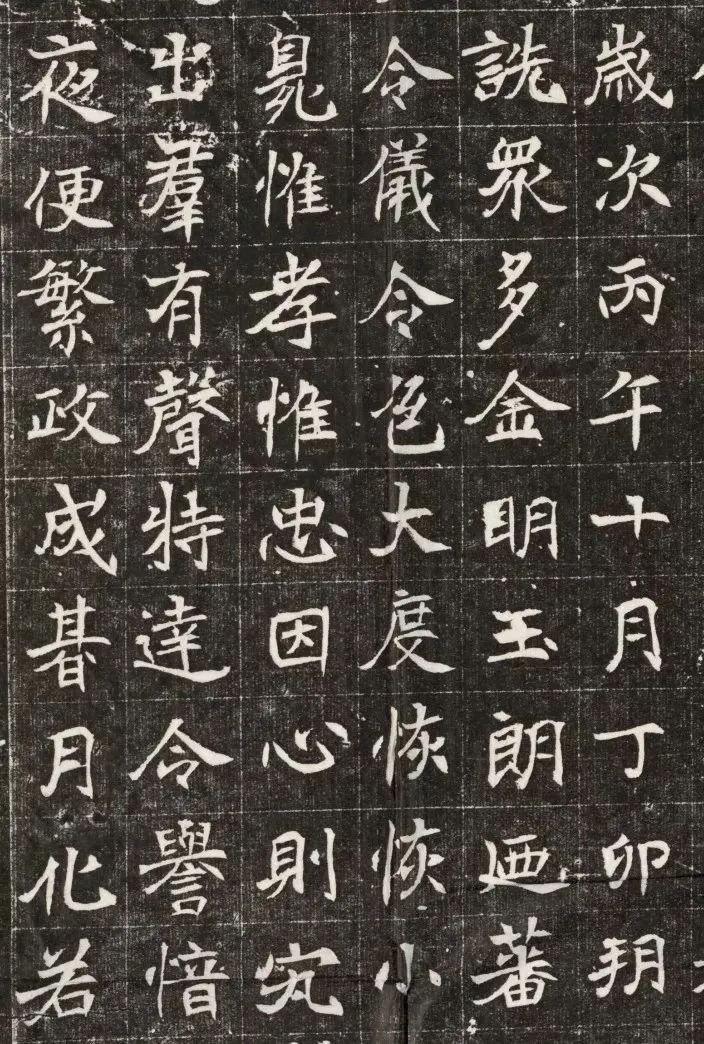 歲次丙午十月丁卯朔
詵眾多金明玉朗廼蕃
令儀令色大度恢恢小
惟孝惟忠因心則究
出羣有聲特達令譽愔
夜便繁政成朞月化若